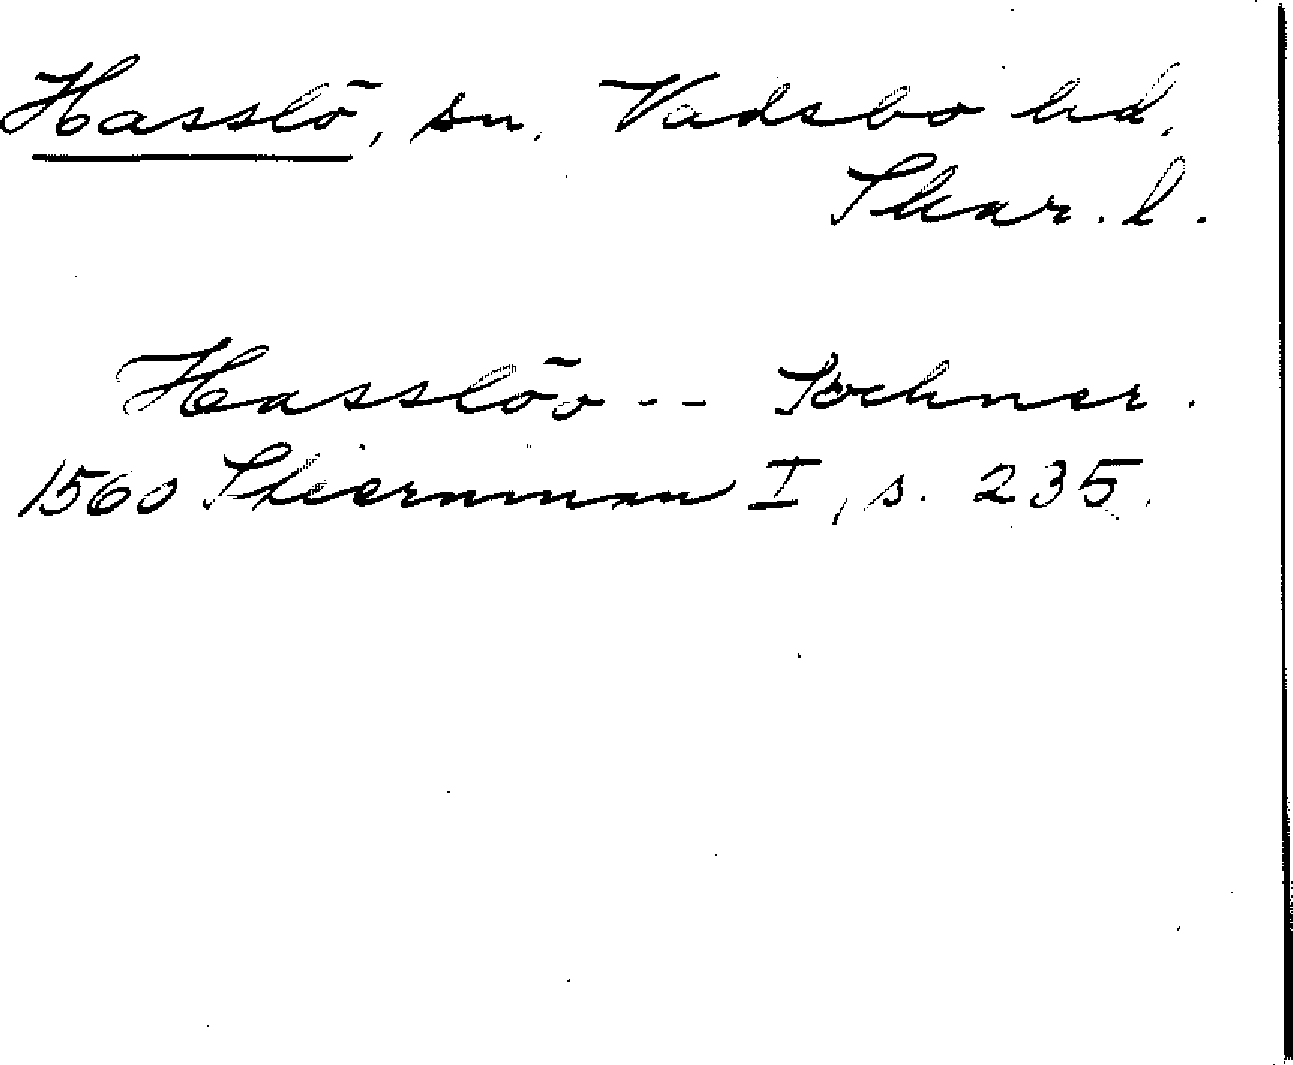 Hasslö, sn. Vadsbo hd,
Skar. l.
Hasslöö -- Sochner.
1560 Stiernman I, s. 235.